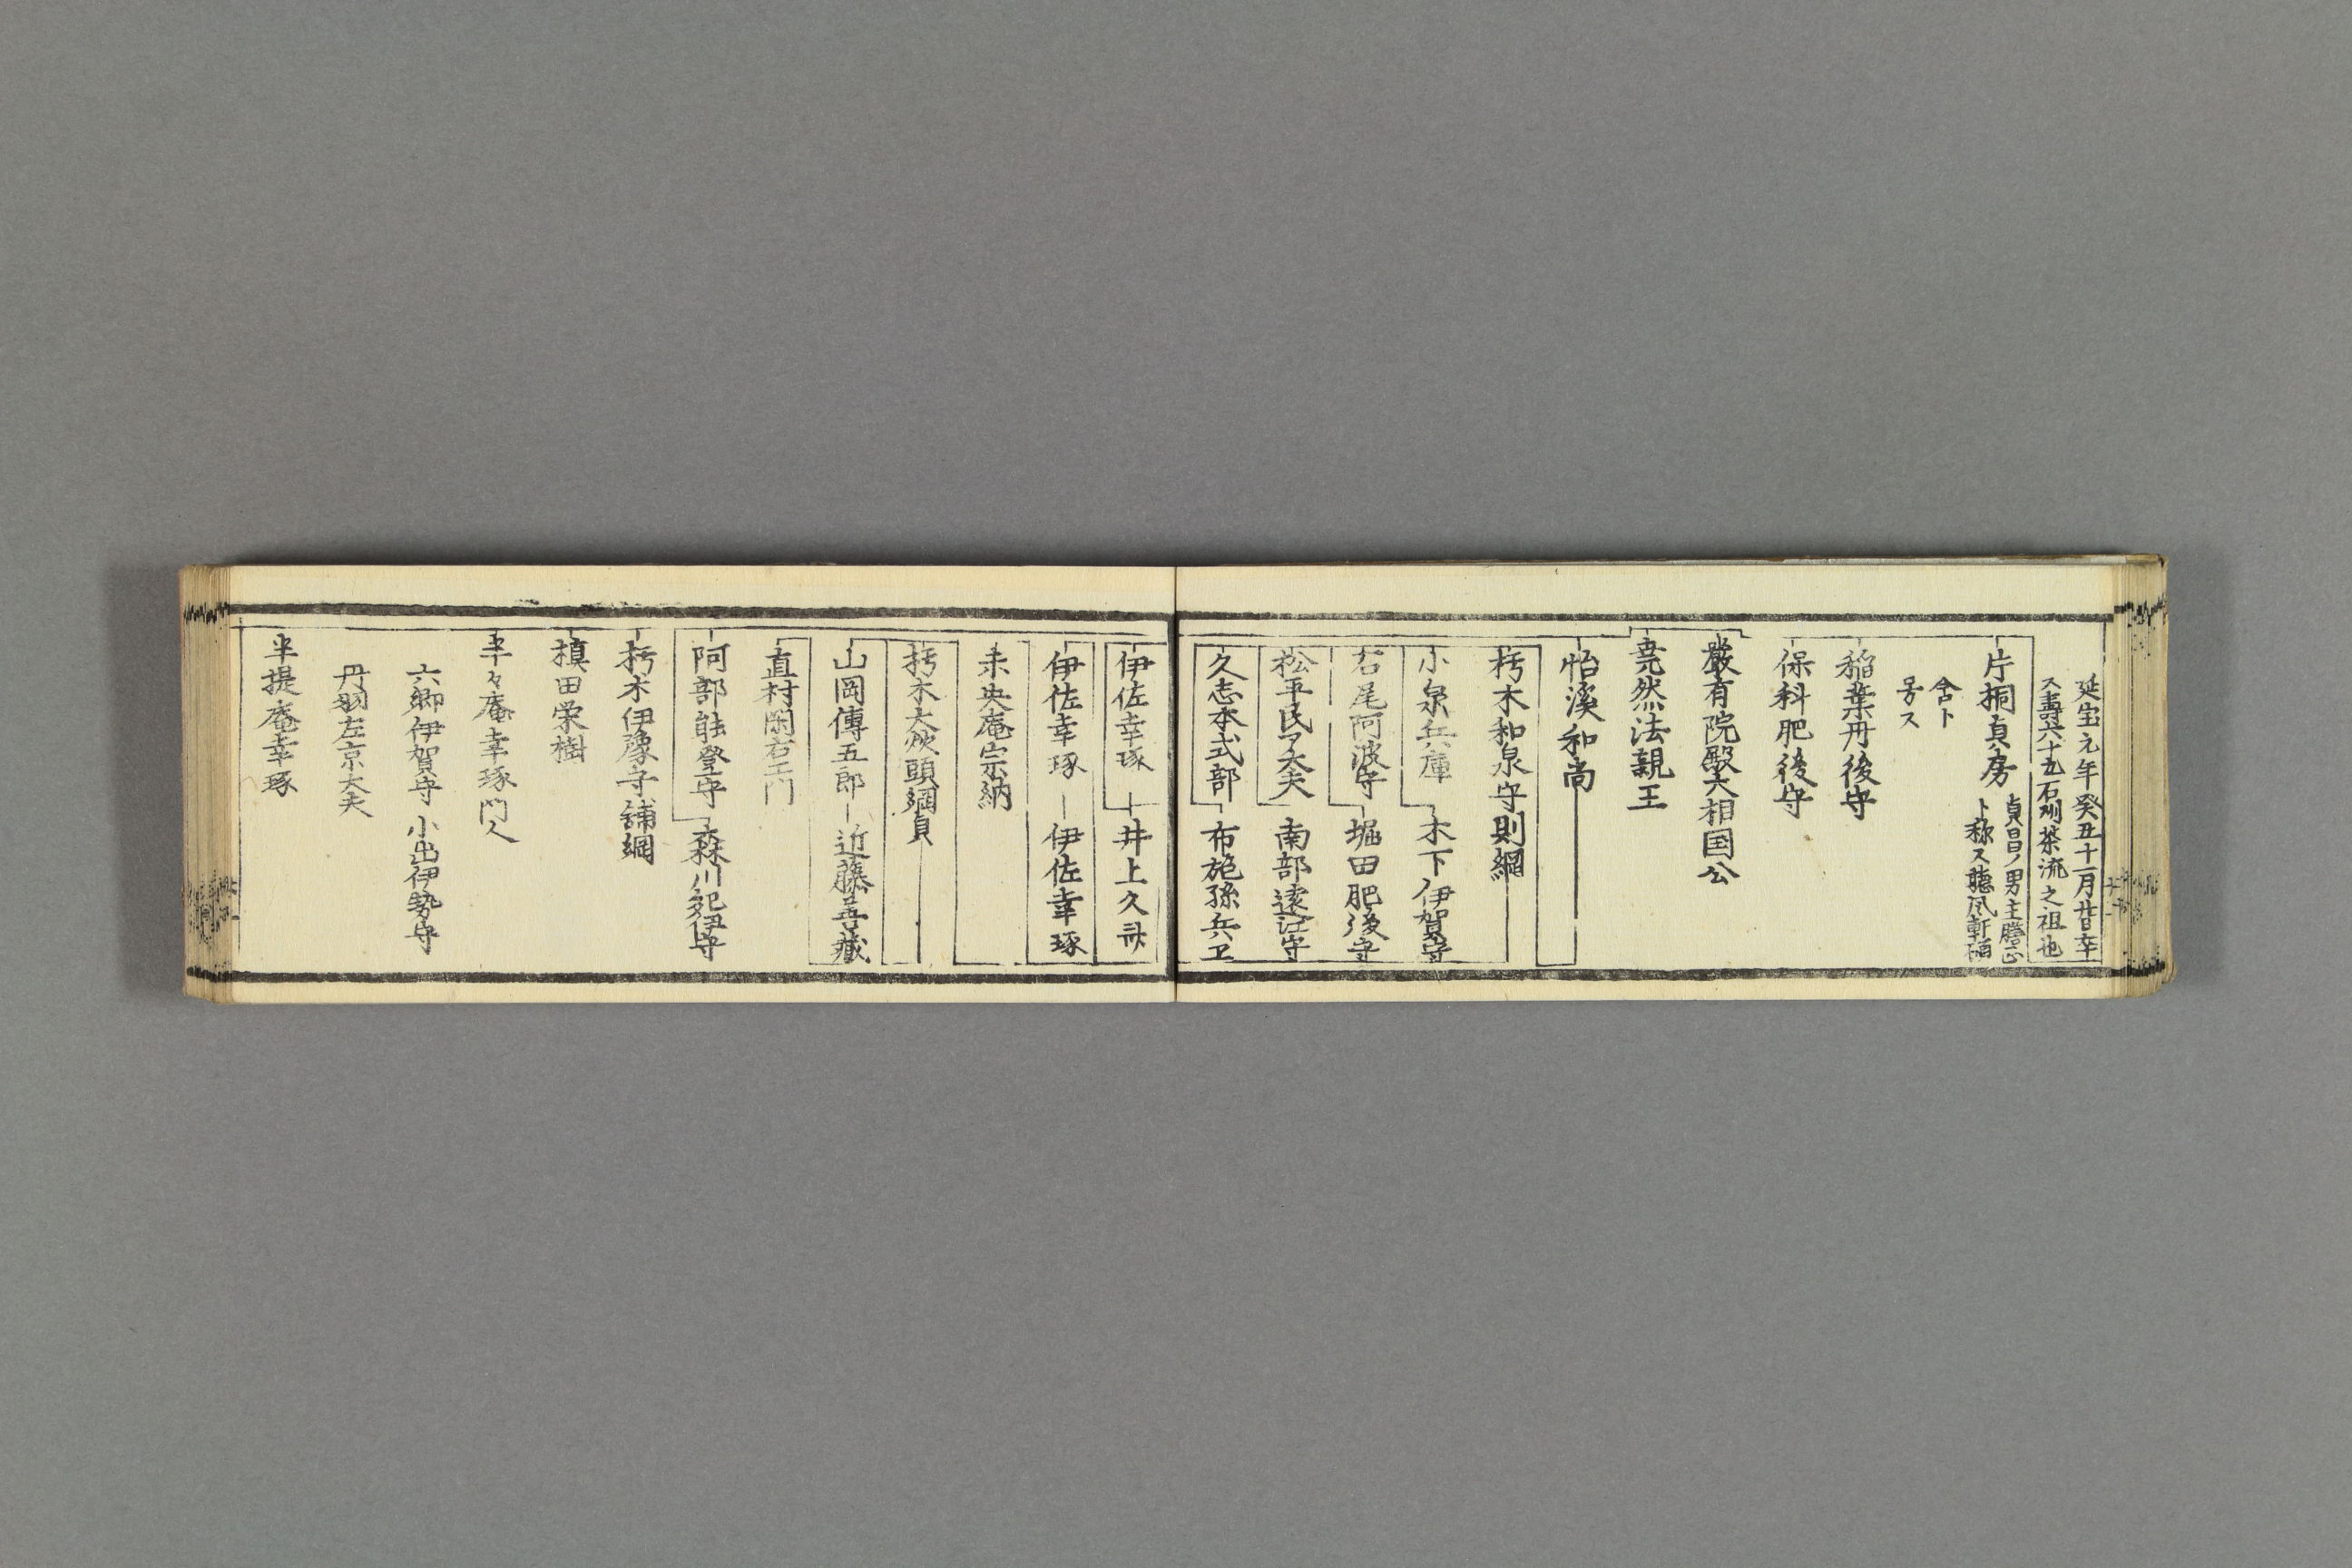 延宝元年癸丑十一月廿日卒
ス壽六十九石刕茶流之祖也
片桐貞房 貞昌ノ男主膳正
ト称ス聴風軒
舎ト
号ス
稲葉丹後守
保科肥後守
嚴有院殿大相国公
尭然法親王
怡溪和尚
朽木和泉守則綱
小泉兵庫 木下伊賀守
石尾阿波守 堀田肥後守
松平民ア大夫 南部遠江守
久志本式部 布施孫兵卫
伊佐幸琢 井上久
伊佐幸琢 伊佐幸琢
未央庵宗納
朽木大炊頭綱貞
山岡傳五郎 近藤善藏
直村閑右エ門
阿部能登守 森川紀伊守
朽木伊豫守舗綱
槙田栄樹
半々庵幸琢門人
六郷伊賀守 小出伊勢守
丹羽左京大夫
半提庵幸琢